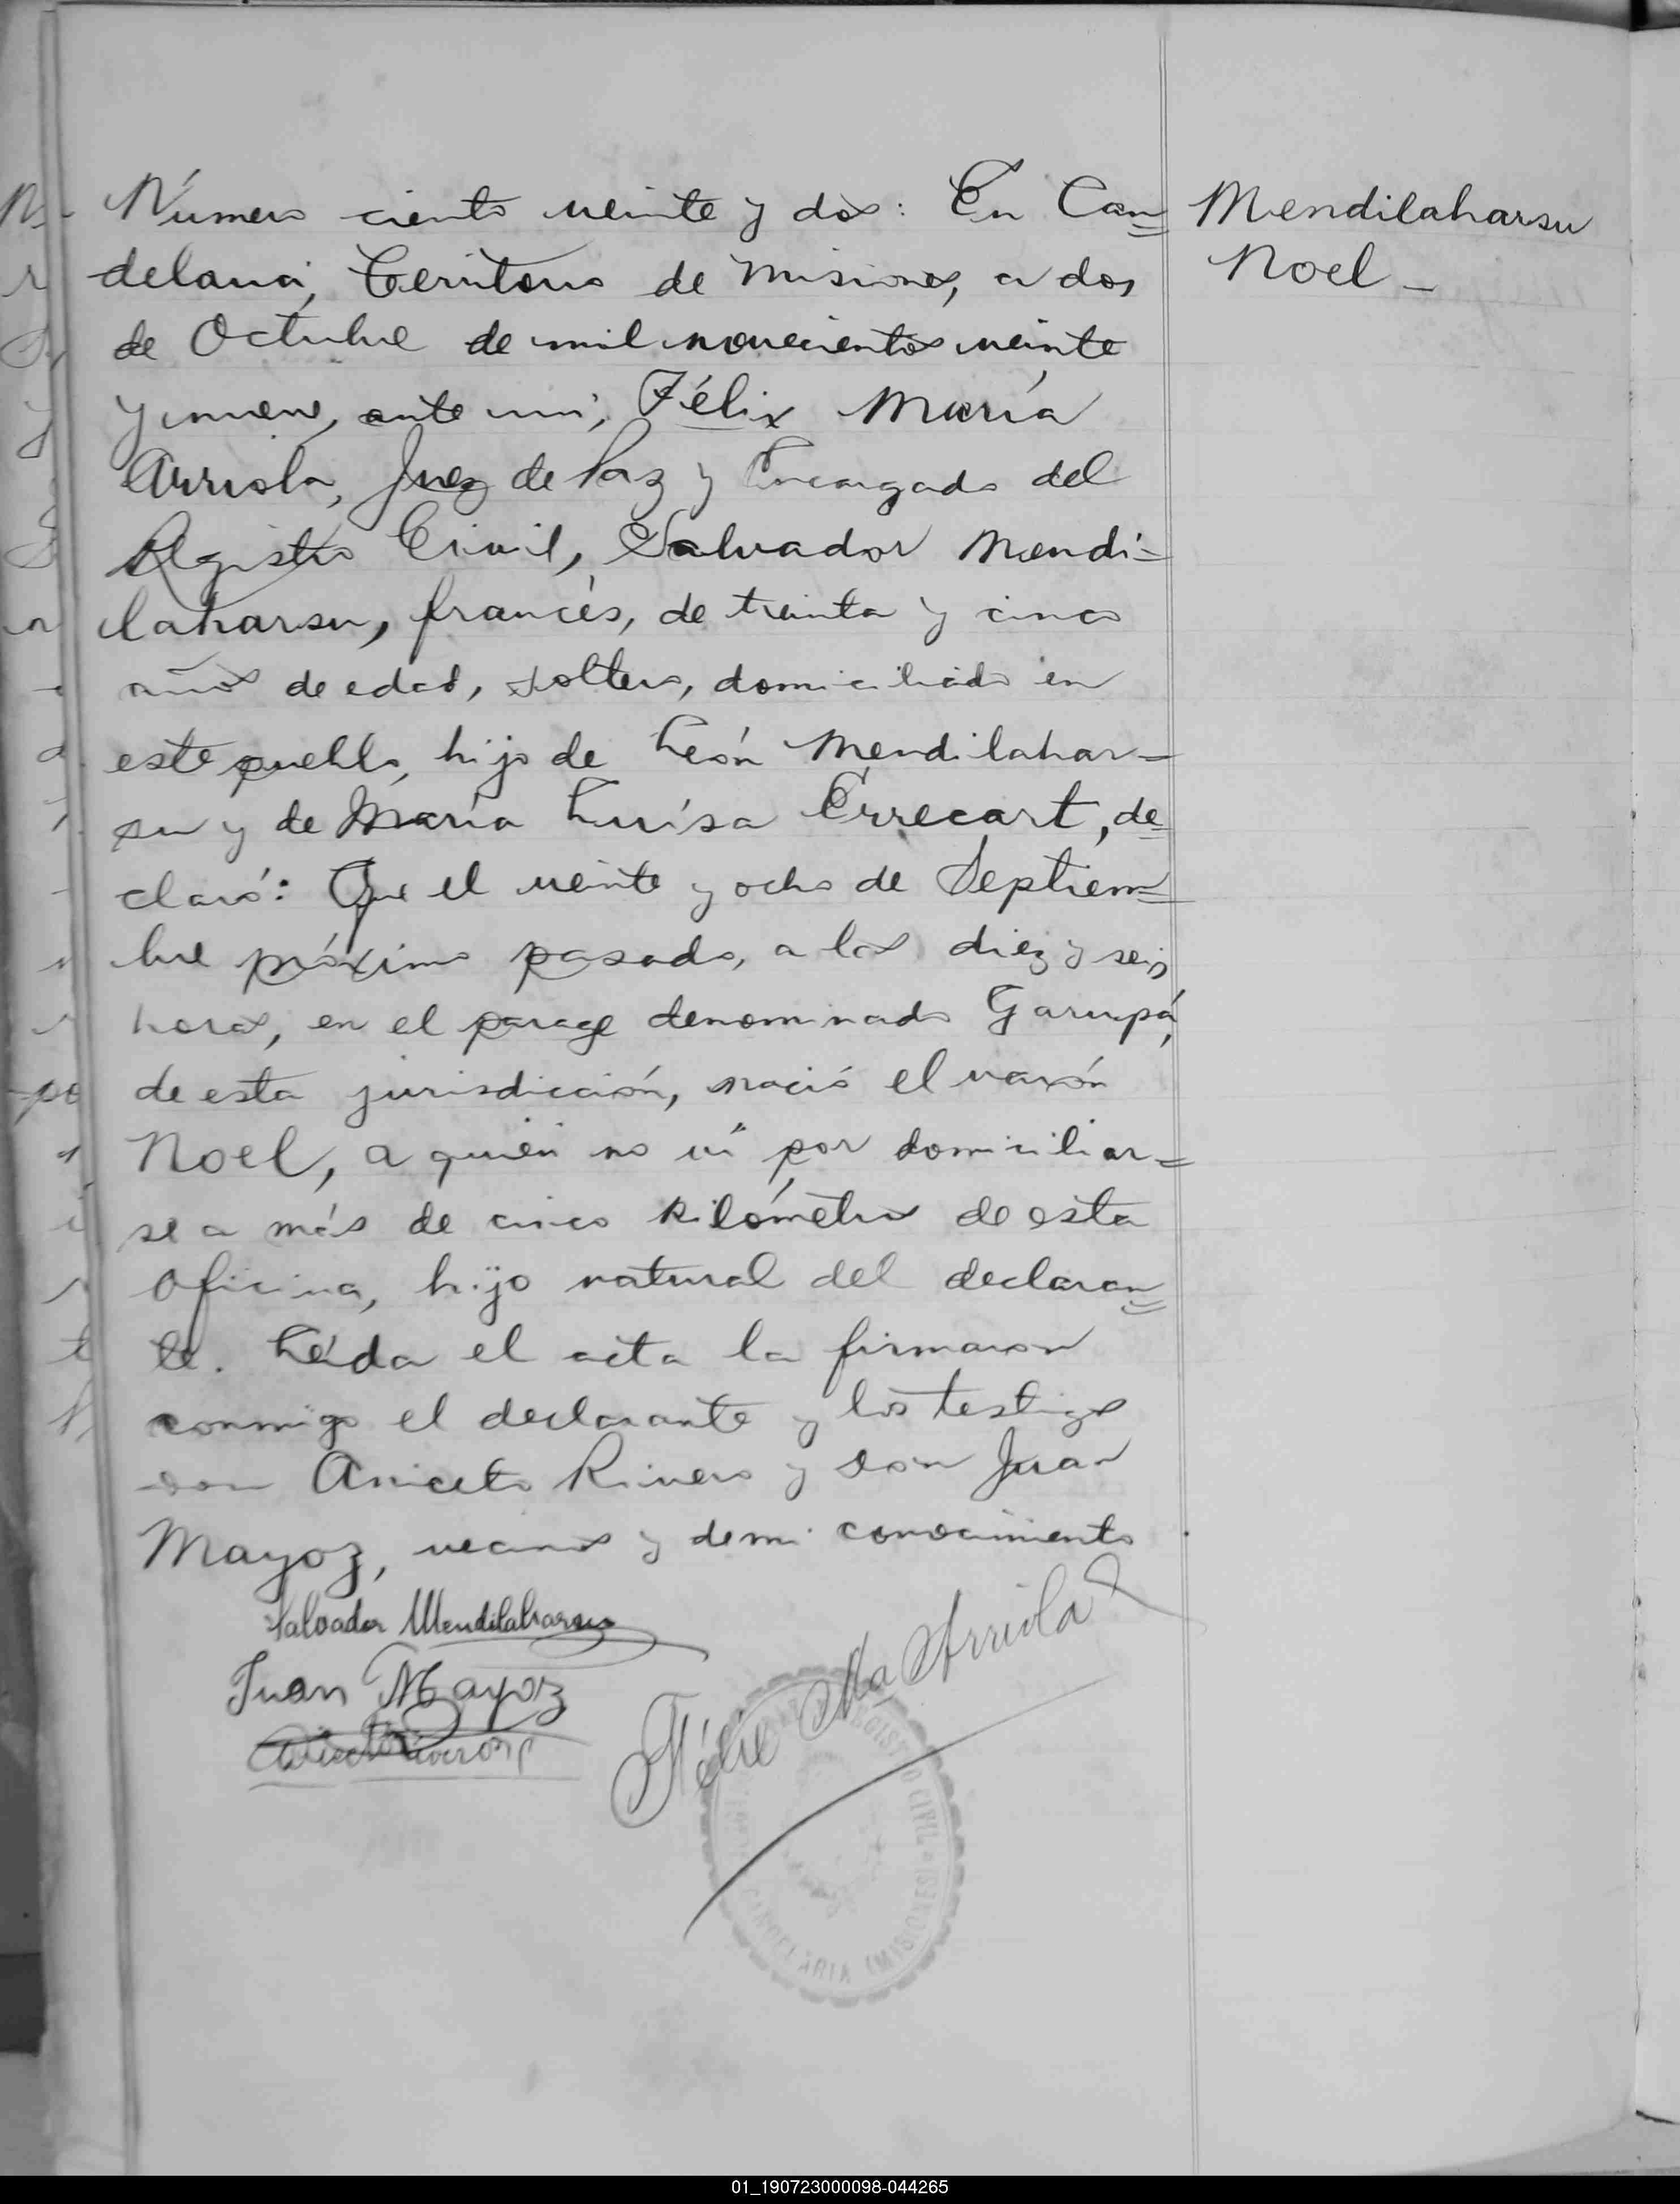 Número ciento veinte y dos: En Can=
delaria, Territorio de Misiones, a dos
de Octubre de mil novecientos veinte
y nueve, ante mi, Félix María
Arriola, Juez de Paz y Encargado del
Registro Civil, Salvador Mendi=
laharsu, francés, de treinta y cinco
años de edad, soltero, domiciliado en
este pueblo, hijo de León Mendilahar=
su y de María Luísa Errecart, de=
claró: Que el veinte y ocho de Septiem=
bre próximo pasado, a las diez y seis
horas, en el parage denominado Garupá,
de esta jurisdicción, nació el varón
Noel, a quién no ví por domiciliar=
se a más de cinco kilómetros de esta
Oficina, hijo natural del declaran=
te. Leída el acta la firmaron
conmigo el declarante y los testigos
don Aniceto Rivero y don Juan
Mayoz, vecinos y de mi conocimiento
Mendilaharsu
Noel -
Salvador Mendilaharsu
Juan Mayoz
Félix Ma Arriola
REGISTRO CIVIL
CANDELARIA (MISIONES)
01_190723000098-044265